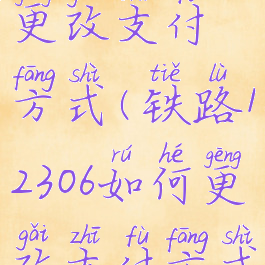 更改支付
fāng shì tiě lù
方式(铁路1
rú hé gēng
2306如何更
gǎi zhī fù fāng shì
改支付方式